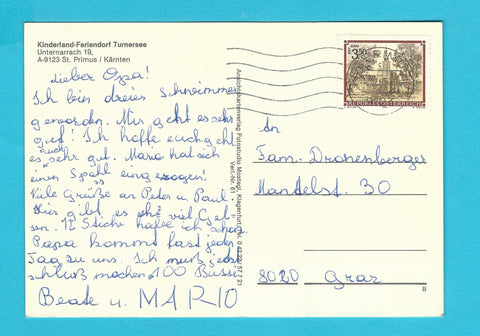 Kinderland-Feriendorf Turnersee
Unternarrach 19,
A-9123 St. Primus / Kärnten
Lieber Opa!
Ich bin dreies Schwimmer
geworden. Mir geht es sehr
gut! Ich hoffe euch geht
es auch sehr gut. Mario hat sich
einen Spahl eingezogen!
Viele Grüße an Peter u. Paul
Hier gibt es sehr viel Gel
sen. 12 Stiche habe ich schon
Papa kommt fast jeden
Tag zu uns. Ich muß jetzt
schluß machen 100 Bussi
Beate u. MARIO
Ansichtskartenverlag Fotostudio
Klagenfurt
Verl.-Nr. 61
3.50
REPUBLIK ÖSTERREICH
An
Fam. Dronenberger
Mandelst. 30
8020 Graz
B